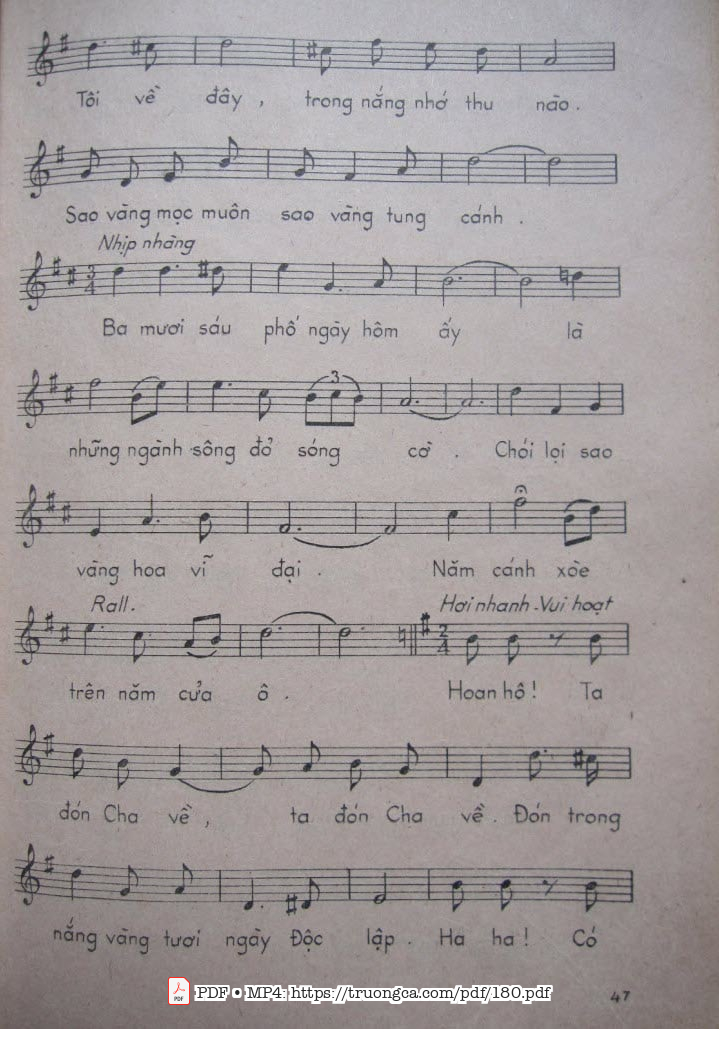 Tôi về đây, trong nắng nhớ thu nào.
Sao vàng mọc muôn sao vàng tung cánh.
Nhịp nhàng
3
4
Ba mươi sáu phố ngày hôm ấy là
3
những ngành sông đỏ sóng cờ. Chói lọi sao
vàng hoa vĩ đại. Năm cánh xòe
Rall. Hơi nhanh - Vui hoạt
2
4
trên năm cửa ô. Hoan hô! Ta
đón Cha về, ta đón Cha về. Đón trong
nắng vàng tươi ngày Độc lập. Ha ha! Có
PDF • MP4: https://truongca.com/pdf/180.pdf
47